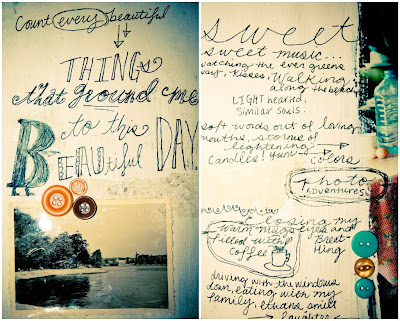 Count every beautiful
THINGS
that ground me
to this
BEAUtiful DAY
sweet
sweet music...
watching the ever greens
kisses, Walking
along the beach
LIGHT hearted,
Similar souls.
soft words out of loving
mouths, storms of
lightening
candles!
colors
photo
ADVENTURES
closing my
warm mugs eyes and
filled with Breat-
coffee Hing
driving with the windows
down, eating with my
family, ethans smile
laughter